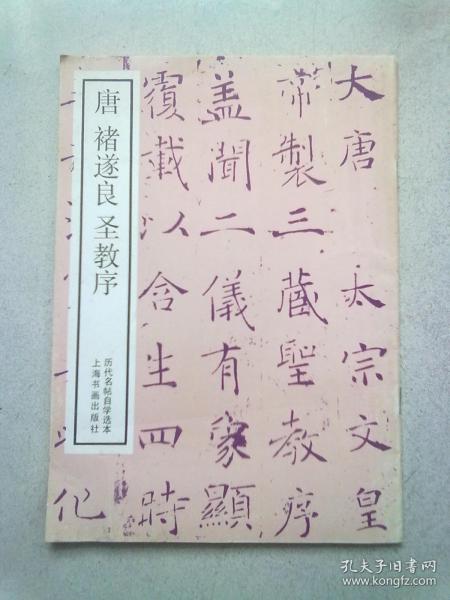 大唐太宗文皇
帝製三藏聖教序
盖聞二儀有象顯
覆載以含生四時
化
唐 褚遂良 圣教序
历代名帖自学选本
上海书画出版社
孔夫子旧书网
www.kongfz.com